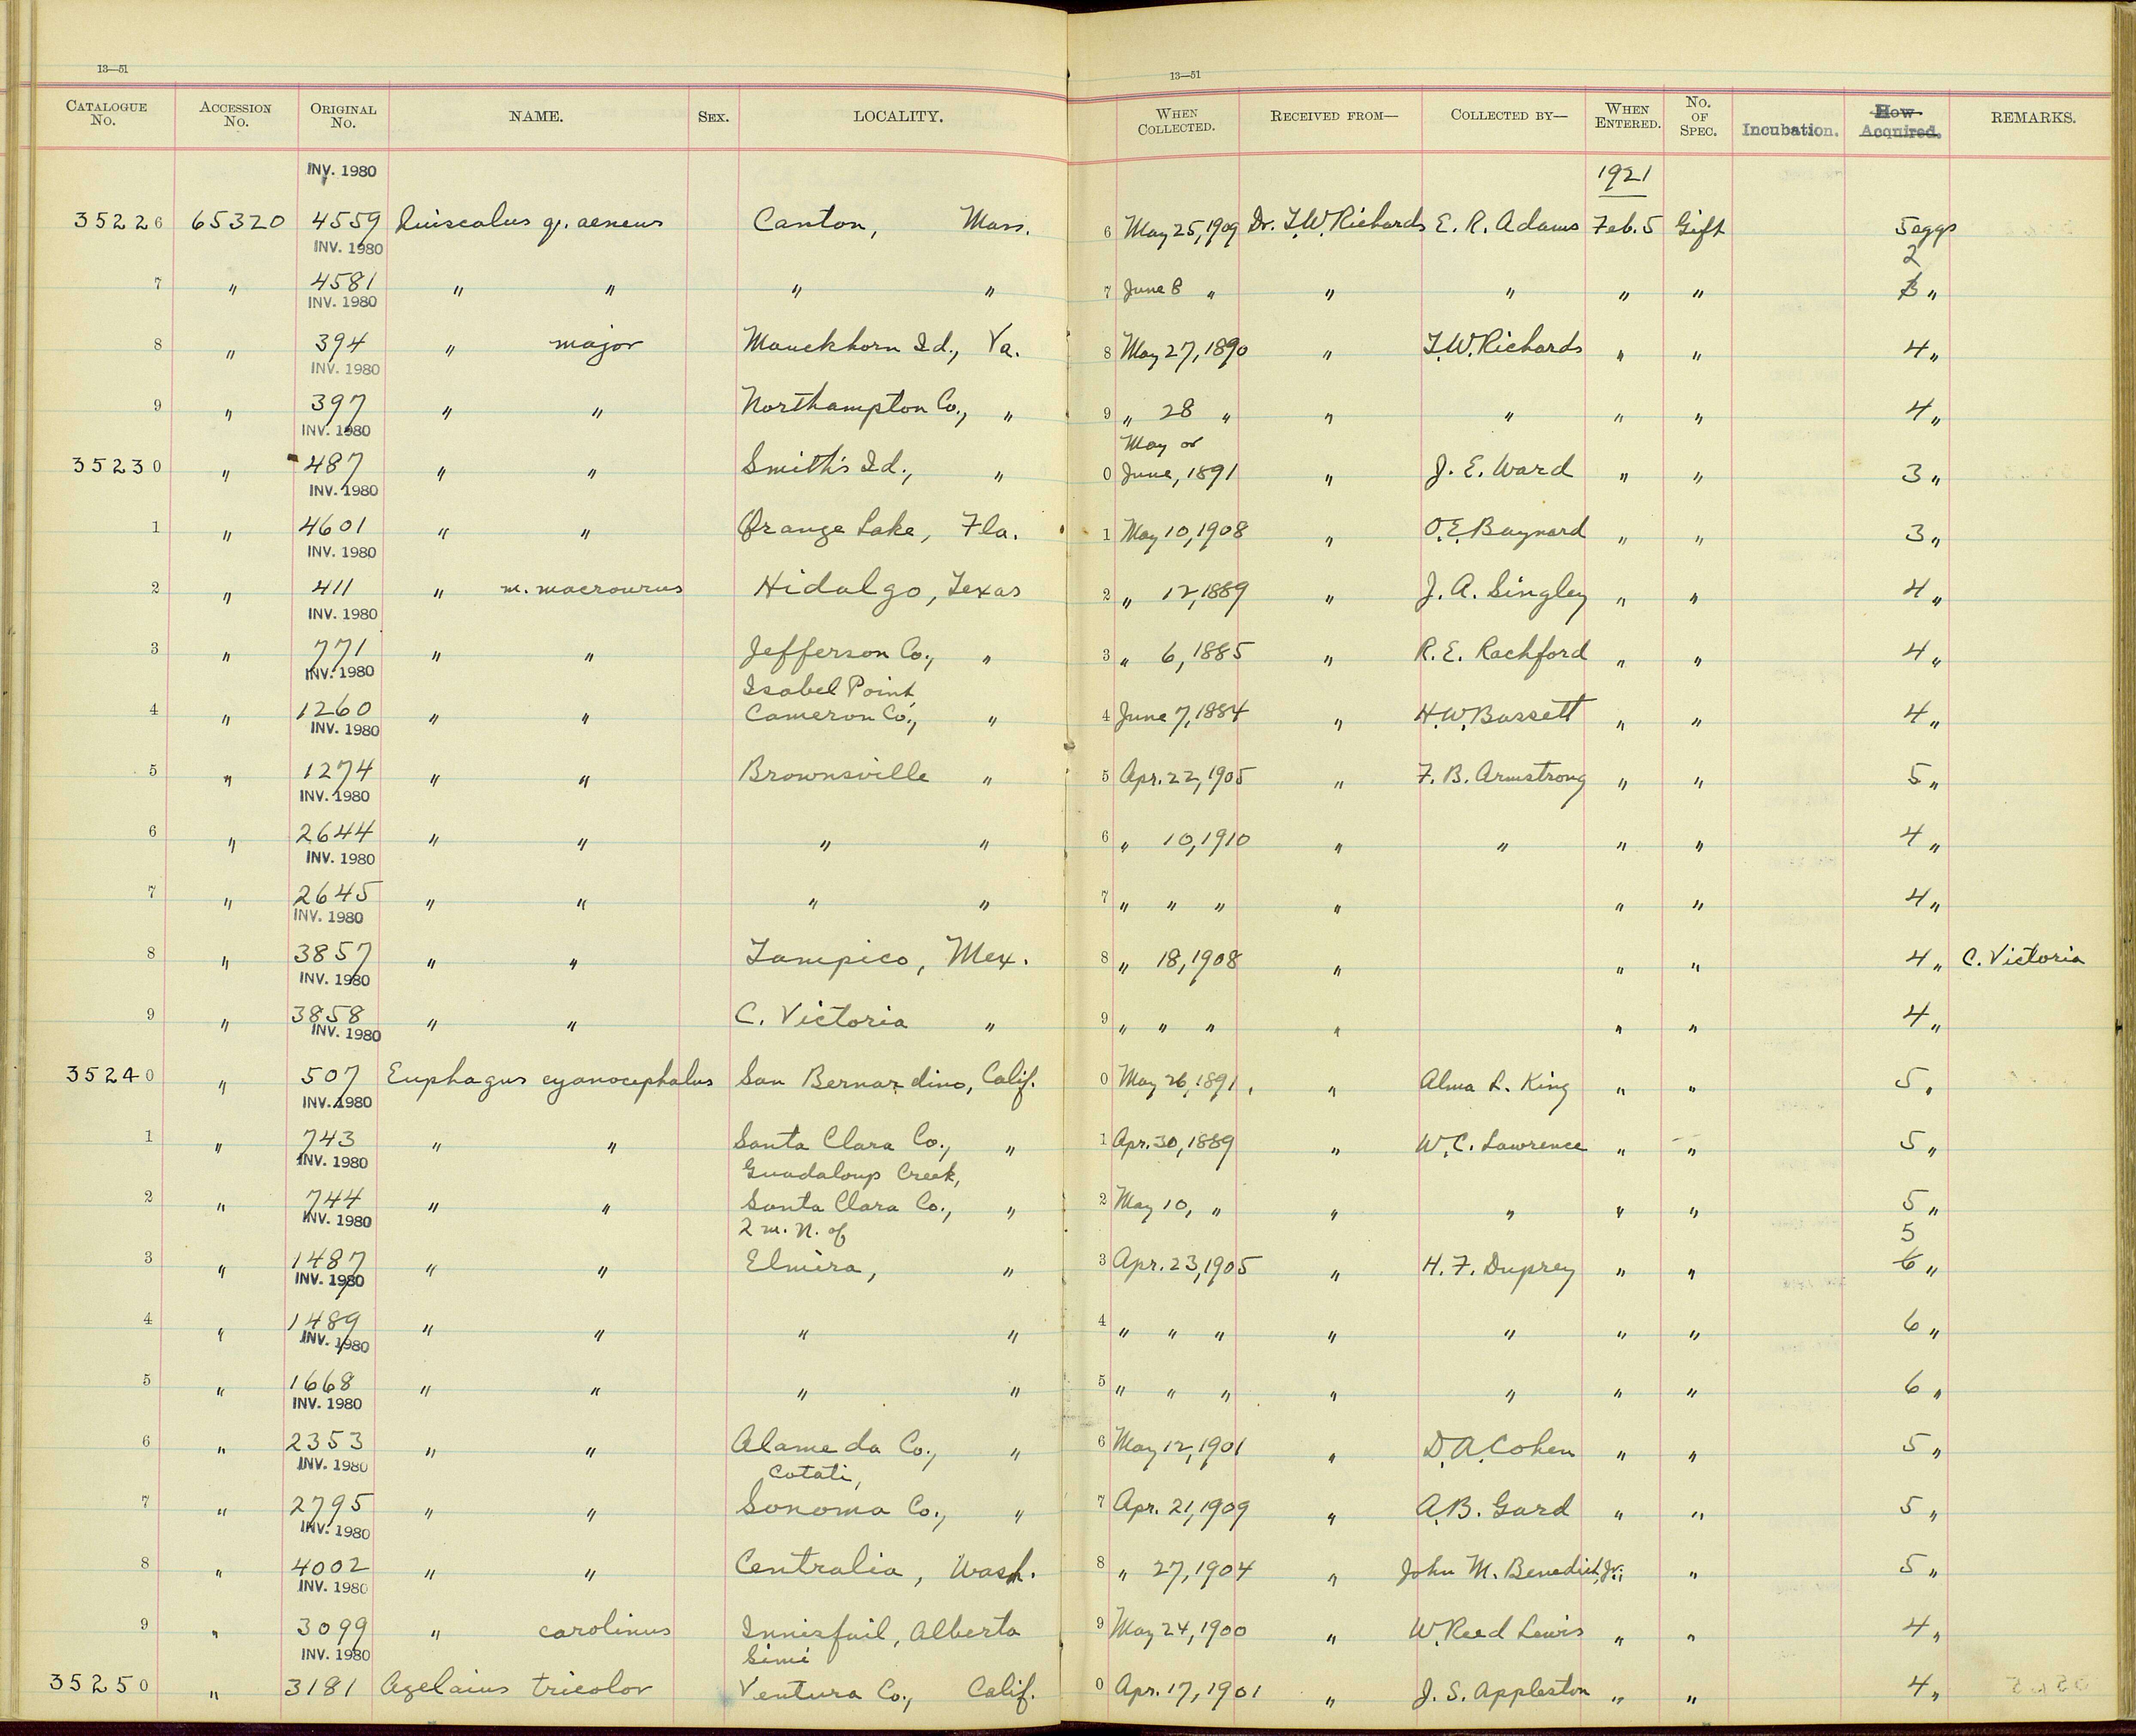 13—51
13—51
CATALOGUE No. ACCESSION No. ORIGINAL No. NAME. SEX. LOCALITY. WHEN COLLECTED. RECEIVED FROM— COLLECTED BY— WHEN ENTERED. No. OF SPEC. Incubation. How Acquired. REMARKS.
INV. 1980 1921
35226 65320 4559 Quiscalus q. aeneus Canton, Mass. 6 May 25, 1909 Dr. T.W. Richards E. R. Adams Feb. 5 Gift 5 eggs
INV. 1980 2
7 " 4581 " " " " 7 June 8 " " " " " 3 "
INV. 1980
8 " 394 " major Mauckhorn Id., Va. 8 May 27, 1890 " T.W. Richards " " 4 "
INV. 1980
9 " 397 " " Northampton Co., " 9 " 28 " " " " " 4 "
INV. 1980 May or
35230 " 487 " " Smith's Id., " 0 June, 1891 " J. E. Ward " " 3 "
INV. 1980
1 " 4601 " " Orange Lake, Fla. 1 May 10, 1908 " O.E. Baynard " " 3 "
INV. 1980
2 " 411 " m. macrourus Hidalgo, Texas 2 " 12, 1889 " J. A. Singley " " 4 "
INV. 1980
3 " 771 " " Jefferson Co., " 3 " 6, 1885 " R. E. Rachford " " 4 "
INV. 1980 Isabel Point,
4 " 1260 " " Cameron Co., " 4 June 7, 1884 " H.W. Bassett " " 4 "
INV. 1980
5 " 1274 " " Brownsville " 5 Apr. 22, 1905 " F. B. Armstrong " " 5 "
INV. 1980
6 " 2644 " " " " 6 " 10, 1910 " " " " 4 "
INV. 1980
7 " 2645 " " " " 7 " " " " " " 4 "
INV. 1980
8 " 3857 " " Tampico, Mex. 8 " 18, 1908 " " " 4 " C. Victoria
INV. 1980
9 " 3858 " " C. Victoria " 9 " " " " " " 4 "
INV. 1980
35240 " 507 Euphagus cyanocephalus San Bernardino, Calif. 0 May 26, 1891, " Alma L. King " " 5 "
INV. 1980
1 " 743 " " Santa Clara Co., " 1 Apr. 30, 1889 " W. C. Lawrence " " 5 "
INV. 1980 Guadaloup Creek,
2 " 744 " " Santa Clara Co., " 2 May 10, " " " " " 5 "
INV. 1980 2 m. N. of 5
3 " 1487 " " Elmira, " 3 Apr. 23, 1905 " H. F. Duprey " " 6 "
INV. 1980
4 " 1489 " " " " 4 " " " " " " " 6 "
INV. 1980
5 " 1668 " " " " 5 " " " " " " " 6 "
INV. 1980
6 " 2353 " " Alameda Co., " 6 May 12, 1901 " D. A. Cohen " " 5 "
INV. 1980 Cotati,
7 " 2795 " " Sonoma Co., " 7 Apr. 21, 1909 " A.B. Gard " " 5 "
INV. 1980
8 " 4002 " " Centralia, Wash. 8 " 27, 1904 " John M. Benedict, Jr. " " 5 "
INV. 1980
9 " 3099 " carolinus Innisfail, Alberta 9 May 24, 1900 " W. Reed Lewis " " 4 "
INV. 1980 Simi
35250 " 3181 Agelaius tricolor Ventura Co., Calif. 0 Apr. 17, 1901 " J. S. Appleton " " 4 "